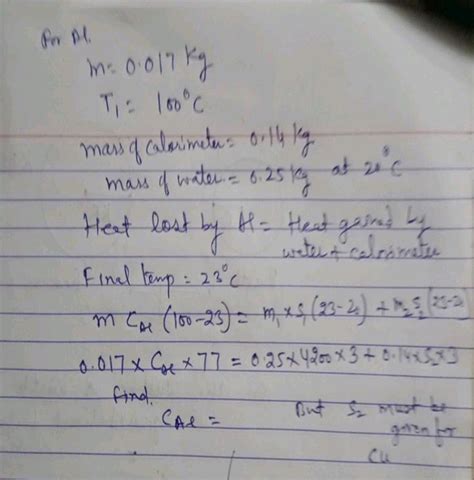 For Al.
m = 0.017 kg
T₁ = 100°C
mass of calorimeter = 0.14 kg
mass of water = 0.25 kg at 20°C
Heat lost by Al = Heat gained by
water + calorimeter
Final temp = 23°C
m C_Al (100-23) = m₁ × S₁ (23-20) + m₂ S₂ (23-20)
0.017 × C_Al × 77 = 0.25×4200×3 + 0.14×S₂×3
find.
C_Al =
But S₂ must be
given for
Cu